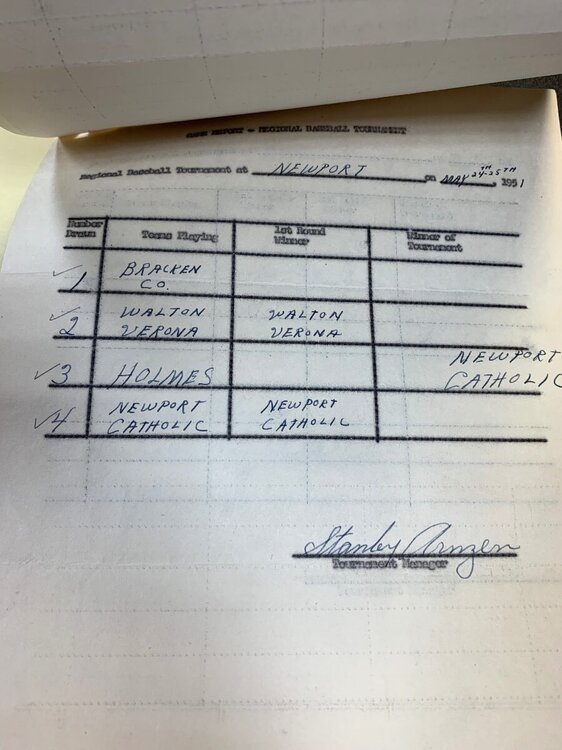 GAME REPORT - REGIONAL BASEBALL TOURNAMENT
Regional Baseball Tournament at NEWPORT on MAY 24TH-25TH, 1951
Number Drawn Teams Playing 1st Round Winner Winner of Tournament
1 BRACKEN CO.
2 WALTON VERONA WALTON VERONA
3 HOLMES NEWPORT CATHOLIC
4 NEWPORT CATHOLIC NEWPORT CATHOLIC
Stanley Arnzen
Tournament Manager